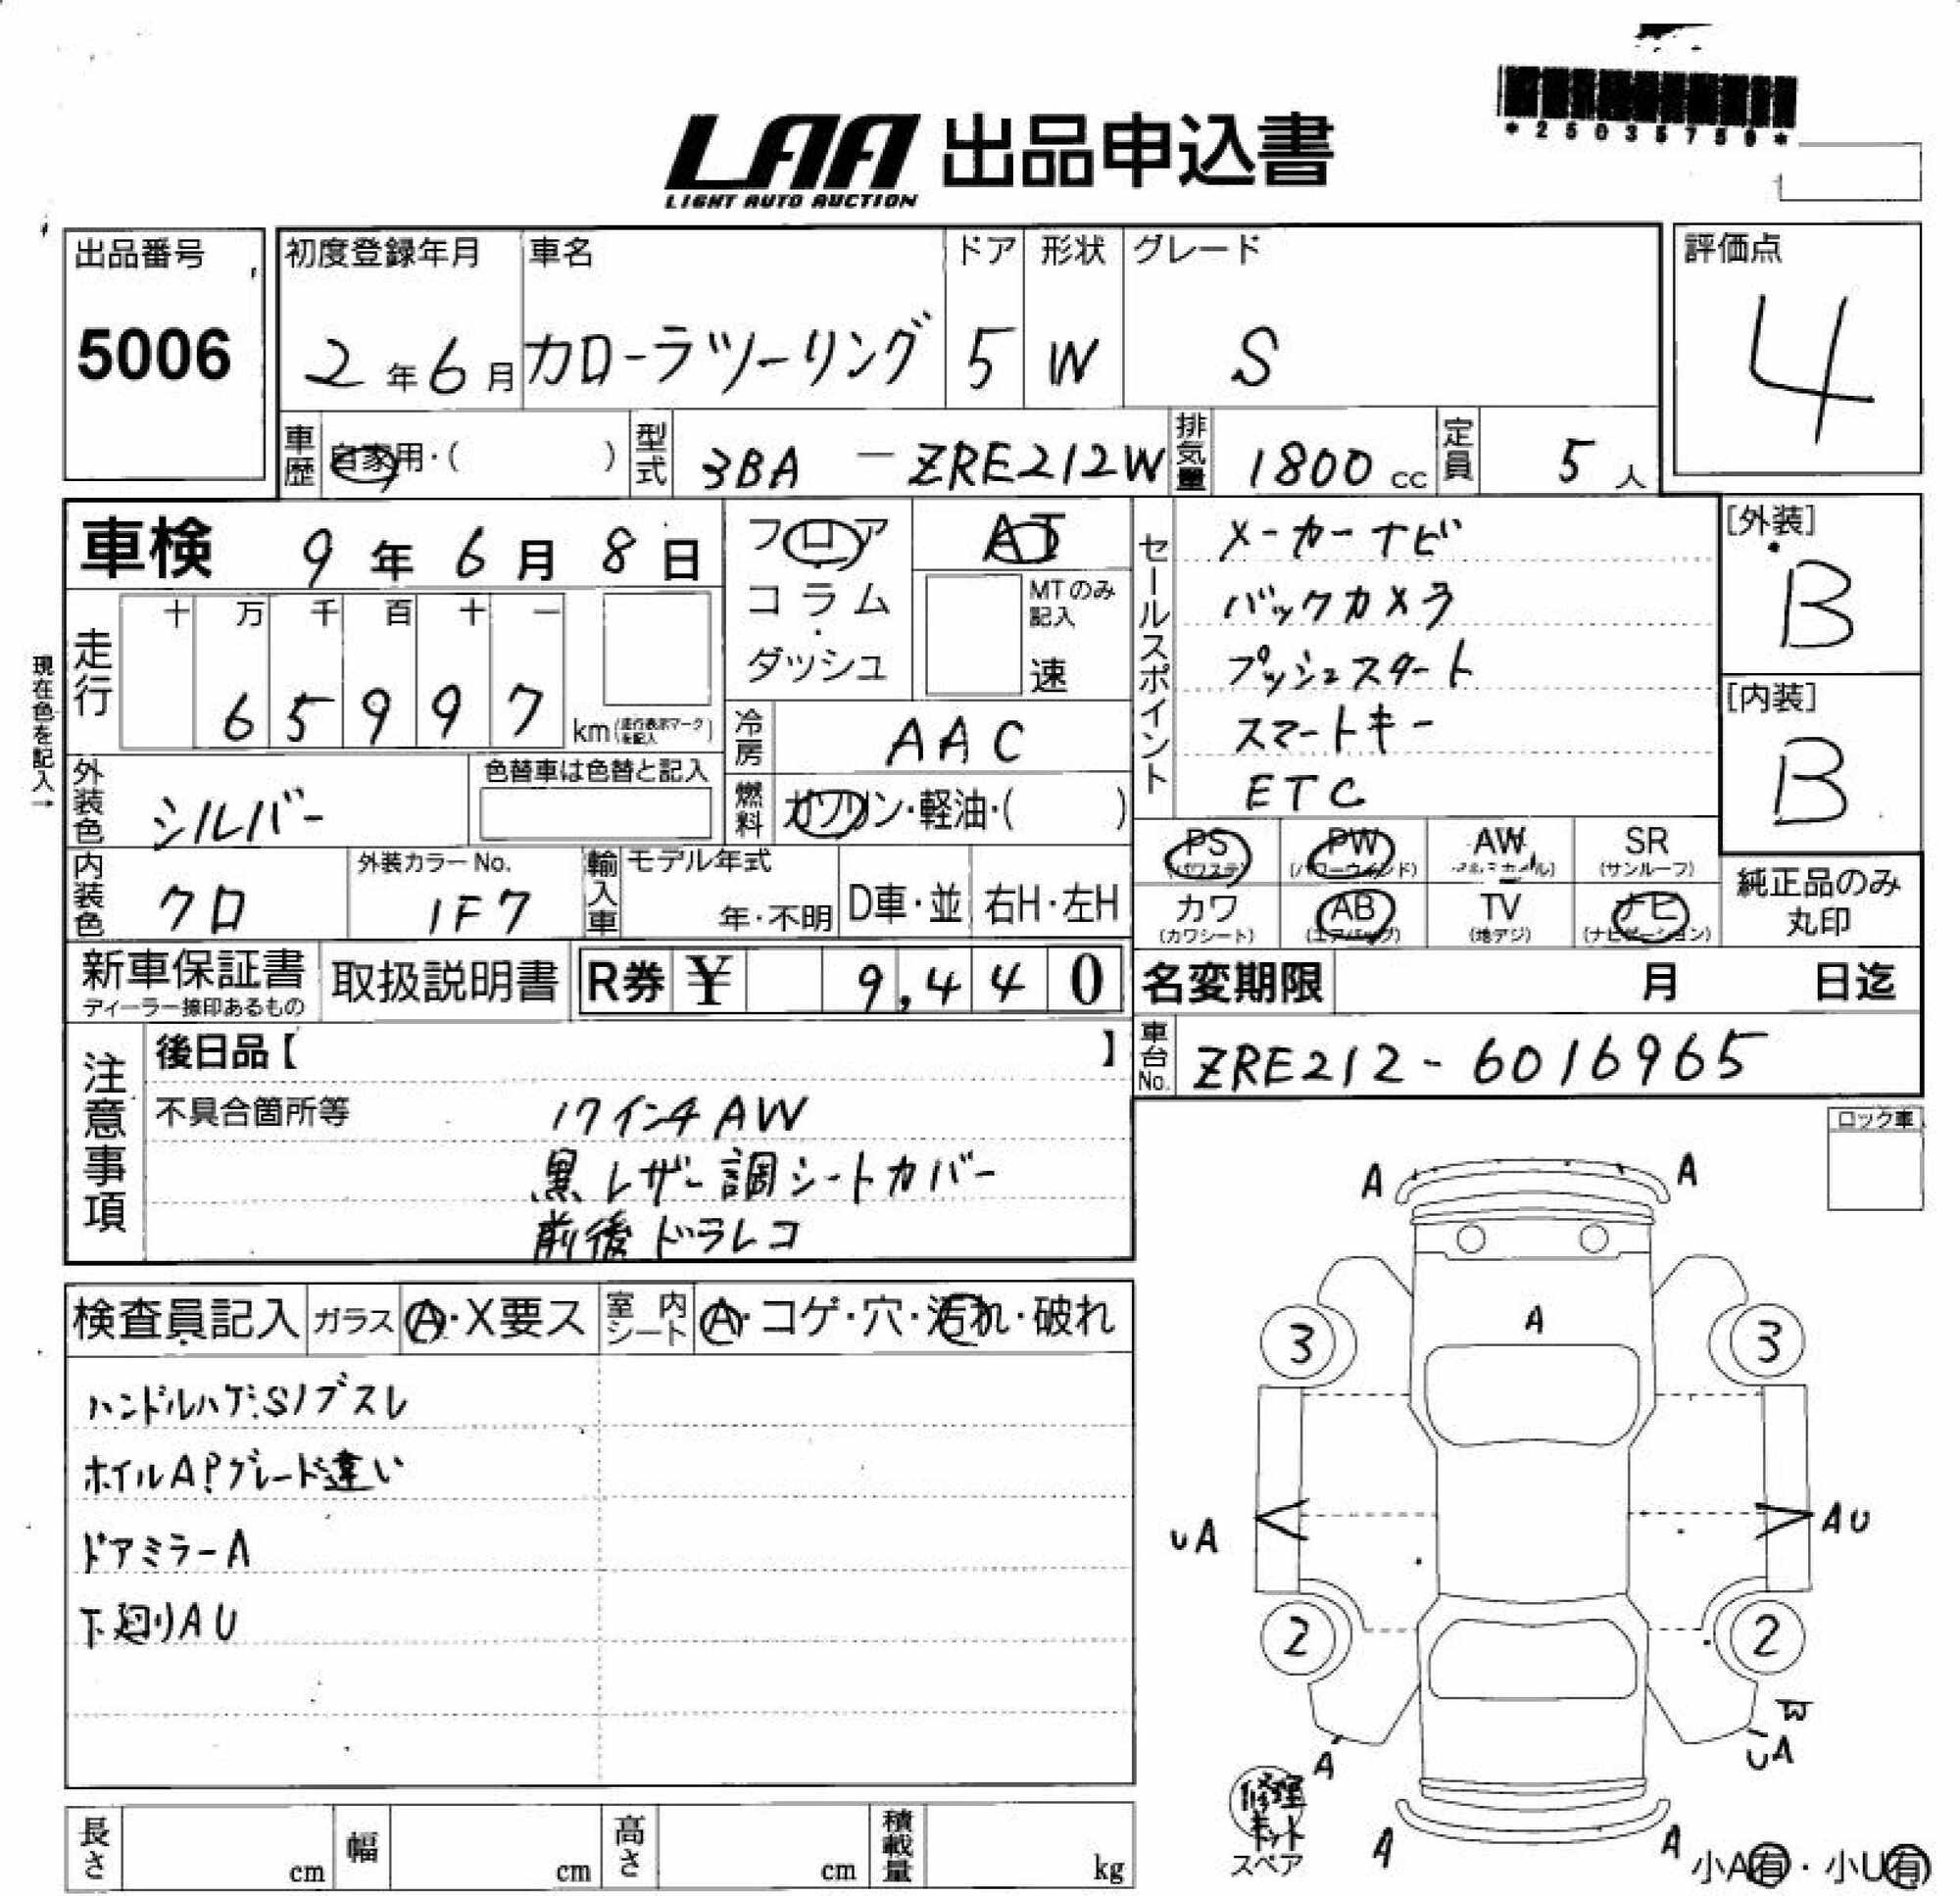 *25035759*
LAA 出品申込書
LIGHT AUTO AUCTION
出品番号
5006
初度登録年月
2年6月
車名
カローラツーリング
ドア
5
形状
W
グレード
S
評価点
4
車歴 自家用・( )
型式 3BA - ZRE212W
排気量 1800 cc
定員 5 人
車検 9年6月8日
フロア
コラム
・
ダッシュ
AT
MTのみ記入
速
現在色を記入→
走行
十 万 千 百 十 一
6 5 9 9 7
km(走行表示マークを記入)
冷房 AAC
外装色 シルバー
色替車は色替と記入
燃料 ガソリン・軽油・( )
内装色 クロ
外装カラーNo.
1F7
輸入車
モデル年式
年・不明
D車・並
右H・左H
セールスポイント
メーカーナビ
バックカメラ
プッシュスタート
スマートキー
ETC
[外装]
B
[内装]
B
PS (パワステ)
PW (パワーウインド)
AW
SR (サンルーフ)
カワ (カワシート)
AB (エアバッグ)
TV (地デジ)
ナビ (ナビゲーション)
純正品のみ
丸印
新車保証書
ディーラー捺印あるもの
取扱説明書
R券 ¥ 9,440
名変期限 月 日迄
車台No. ZRE212-6016965
注意事項
後日品【 】
不具合箇所等
17インチAW
黒レザー調シートカバー
前後ドラレコ
検査員記入
ガラス A・X要ス
室内シート A・コゲ・穴・汚れ・破れ
ハンドルハゲ:Sノブスレ
ホイルAPグレード違い
ドアミラーA
下廻りAU
ロック車
A A
A
3 3
UA AU
2 2
W
A UA
修理キット
スペア
A A
小A有・小U有
長さ cm
幅 cm
高さ cm
積載量 kg